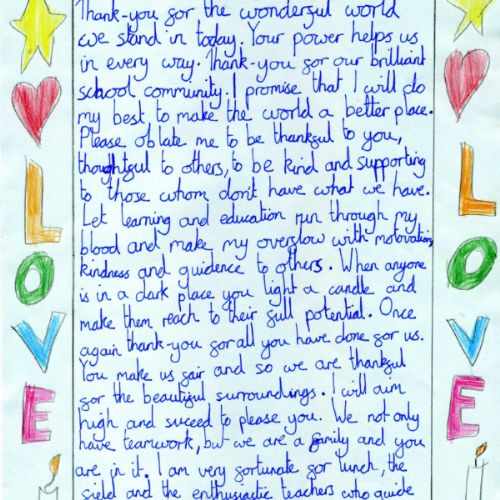 Thank-you for the wonderful world
we stand in today. Your power helps us
in every way. Thank-you for our brilliant
school community. I promise that I will do
my best, to make the world a better place.
Please oblate me to be thankful to you,
thoughtful to others, to be kind and supporting
to those whom don't have what we have.
Let learning and education run through my
blood and make my overflow with motovation,
kindness and guidence to others. When anyone
is in a dark place you light a candle and
make them reach to their full potential. Once
again thank-you for all you have done for us.
You make us fair and so we are thankful
for the beautiful surroundings. I will aim
high and suceed to please you. We not only
have teamwork, but we are a family and you
are in it. I am very fortunate for lunch, the
field and the enthusiastic teachers who guide
LOVE
LOVE